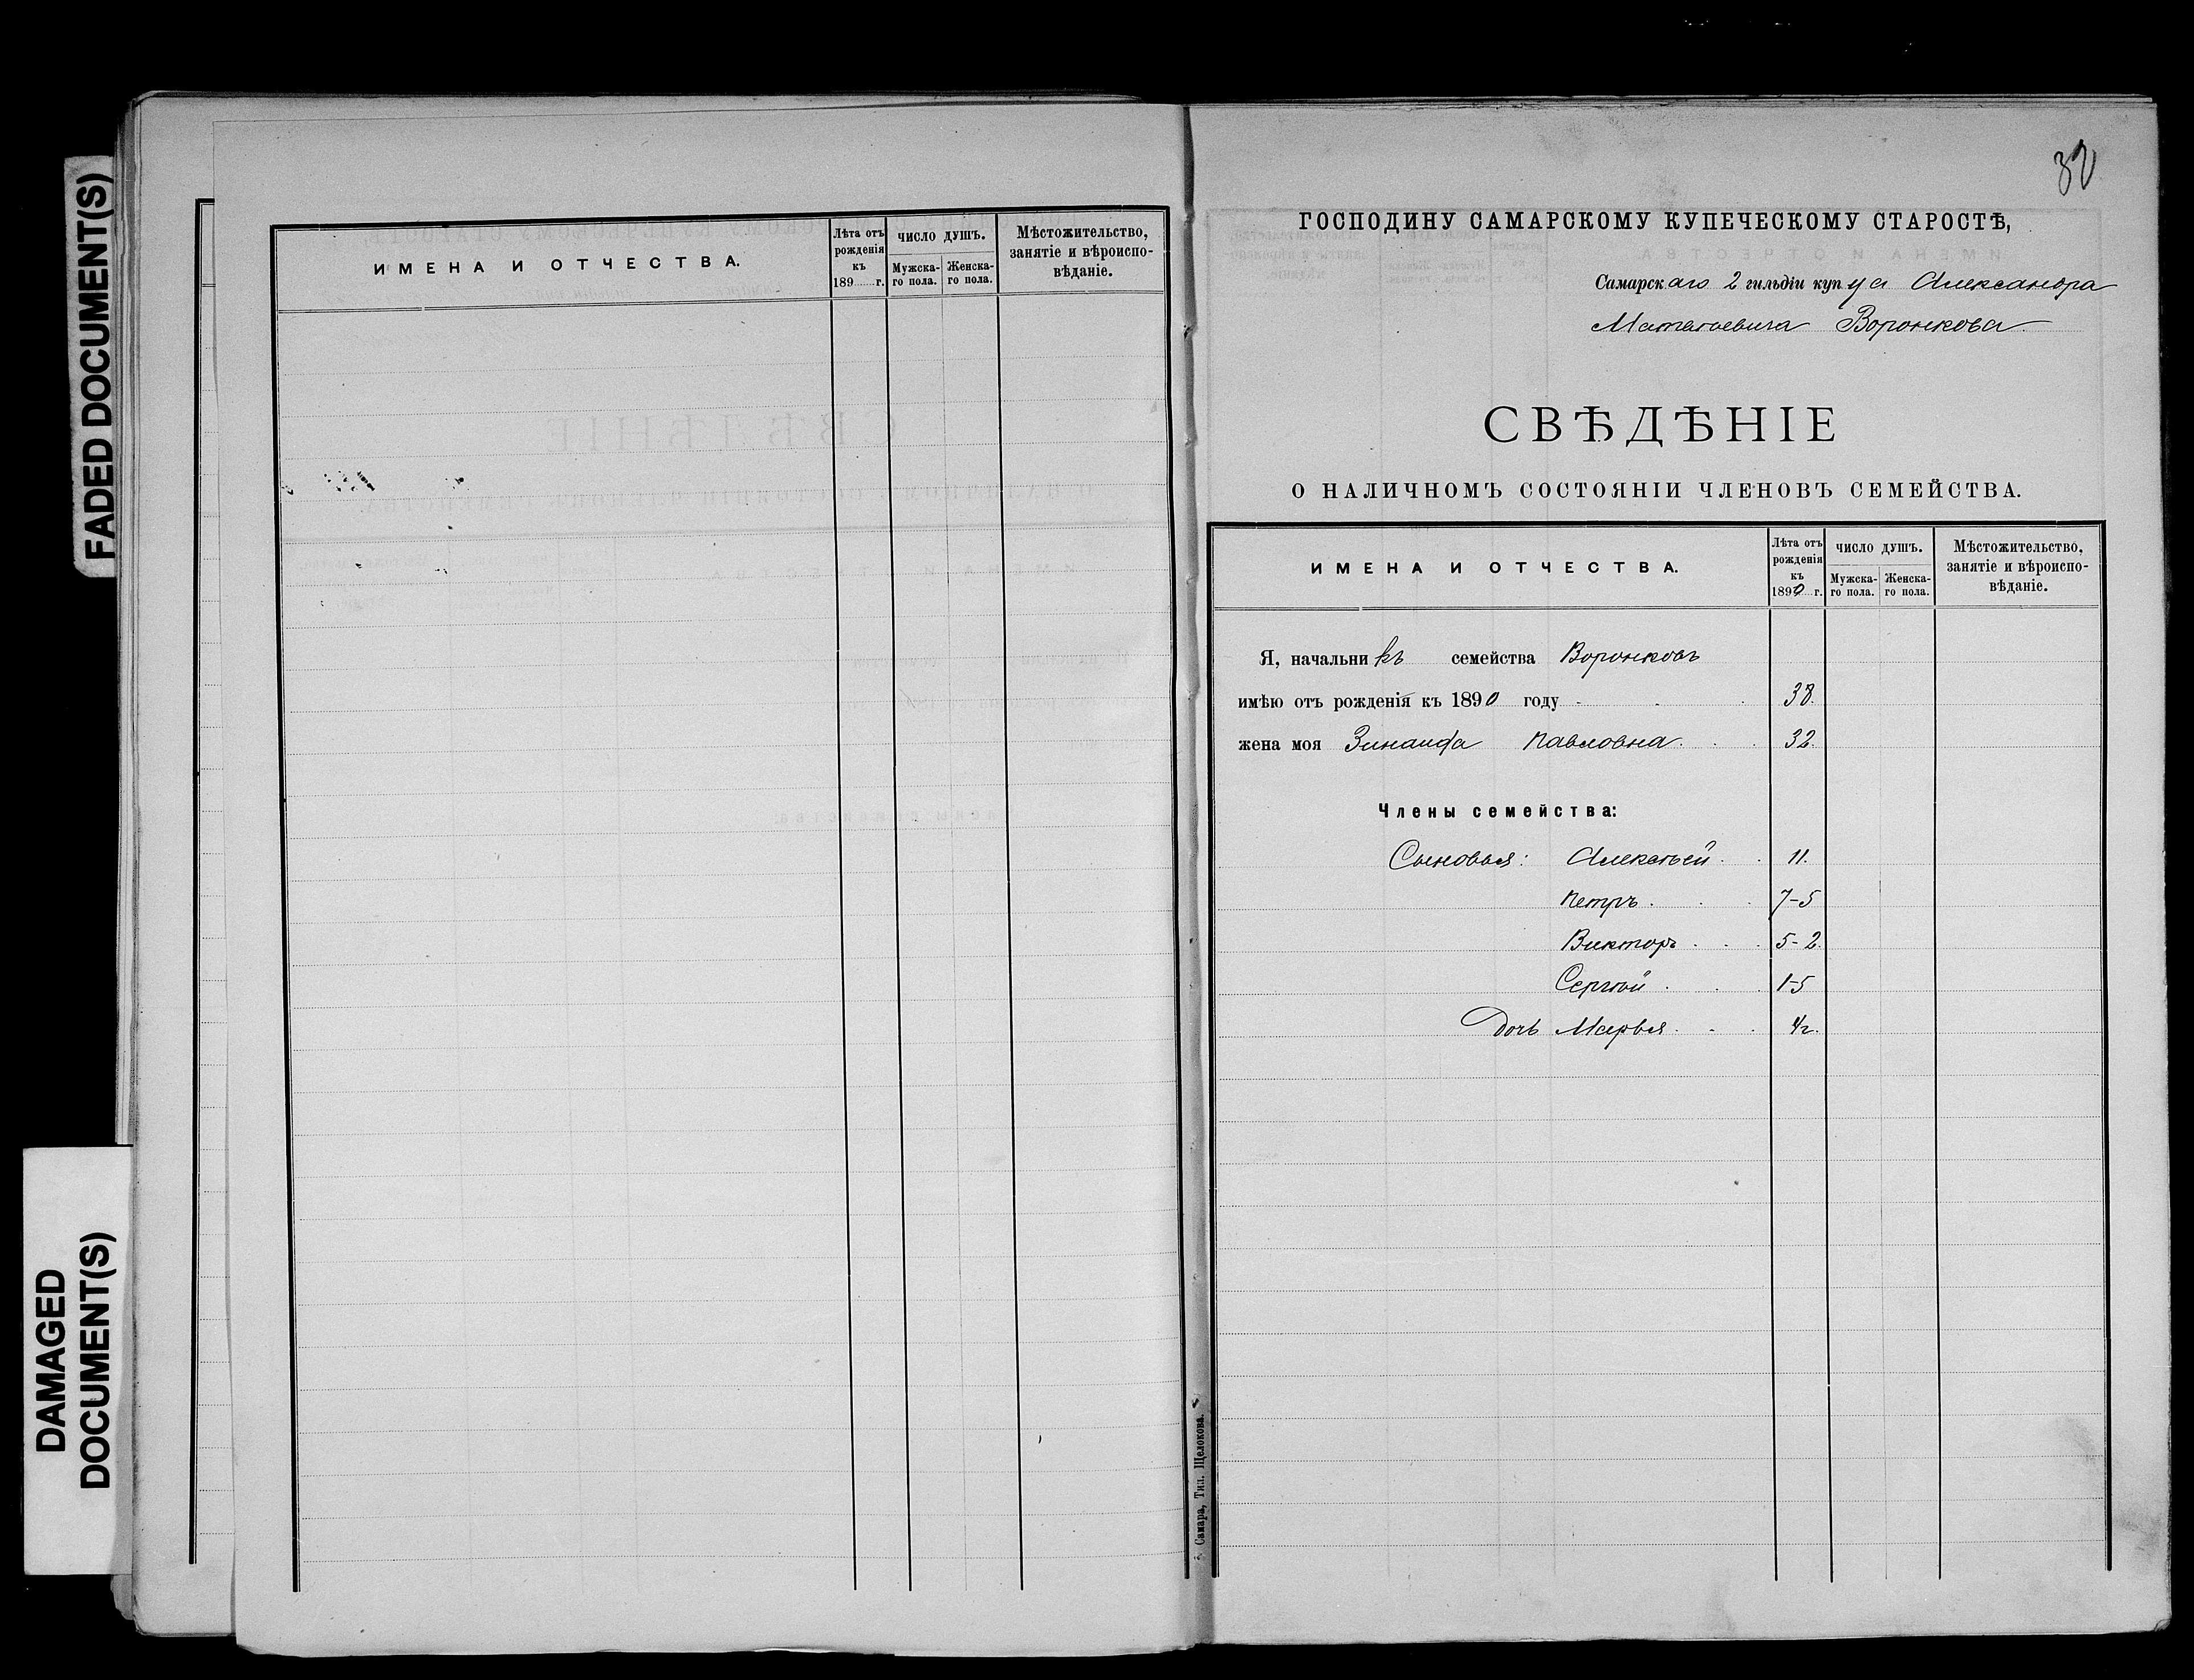 FADED DOCUMENT(S)
DAMAGED
DOCUMENT(S)
ИМЕНА И ОТЧЕСТВА.
Лѣта отъ
рожденія
къ
189 г.
ЧИСЛО ДУШЪ.
Мужска-
го пола.
Женска-
го пола.
Мѣстожительство,
занятіе и вѣроиспо-
вѣданіе.
32
ГОСПОДИНУ САМАРСКОМУ КУПЕЧЕСКОМУ СТАРОСТѢ,
Самарскаго 2 гильдіи купца Александра
Матвѣевича Воронкова
СВѢДѢНІЕ
О НАЛИЧНОМЪ СОСТОЯНІИ ЧЛЕНОВЪ СЕМЕЙСТВА.
ИМЕНА И ОТЧЕСТВА.
Лѣта отъ
рожденія
къ
1890 г.
ЧИСЛО ДУШЪ.
Мужска-
го пола.
Женска-
го пола.
Мѣстожительство,
занятіе и вѣроиспо-
вѣданіе.
Я, начальникъ семейства Воронковъ
имѣю отъ рожденія къ 1890 году 38.
жена моя Зинаида Павловна. 32.
Члены семейства:
Сыновья: Алексѣй 11.
Петръ 7-5
Викторъ 5-2.
Сергѣй 1-5
Дочь Марья 4г.
Самара, Тип. Щелокова.